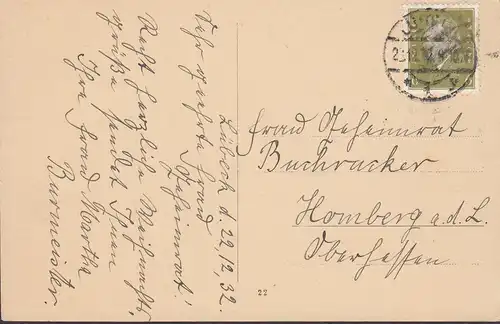 Lübeck d. 22.12.32.
Sehr geehrte Frau
Geheimrat!
Recht herzliche Weihnachts-
grüße sendet Ihnen
Ihre Frau Martha
Burmeister.
Frau Geheimrat
Buchrucker
Homberg a.d.L.
Oberhessen
22